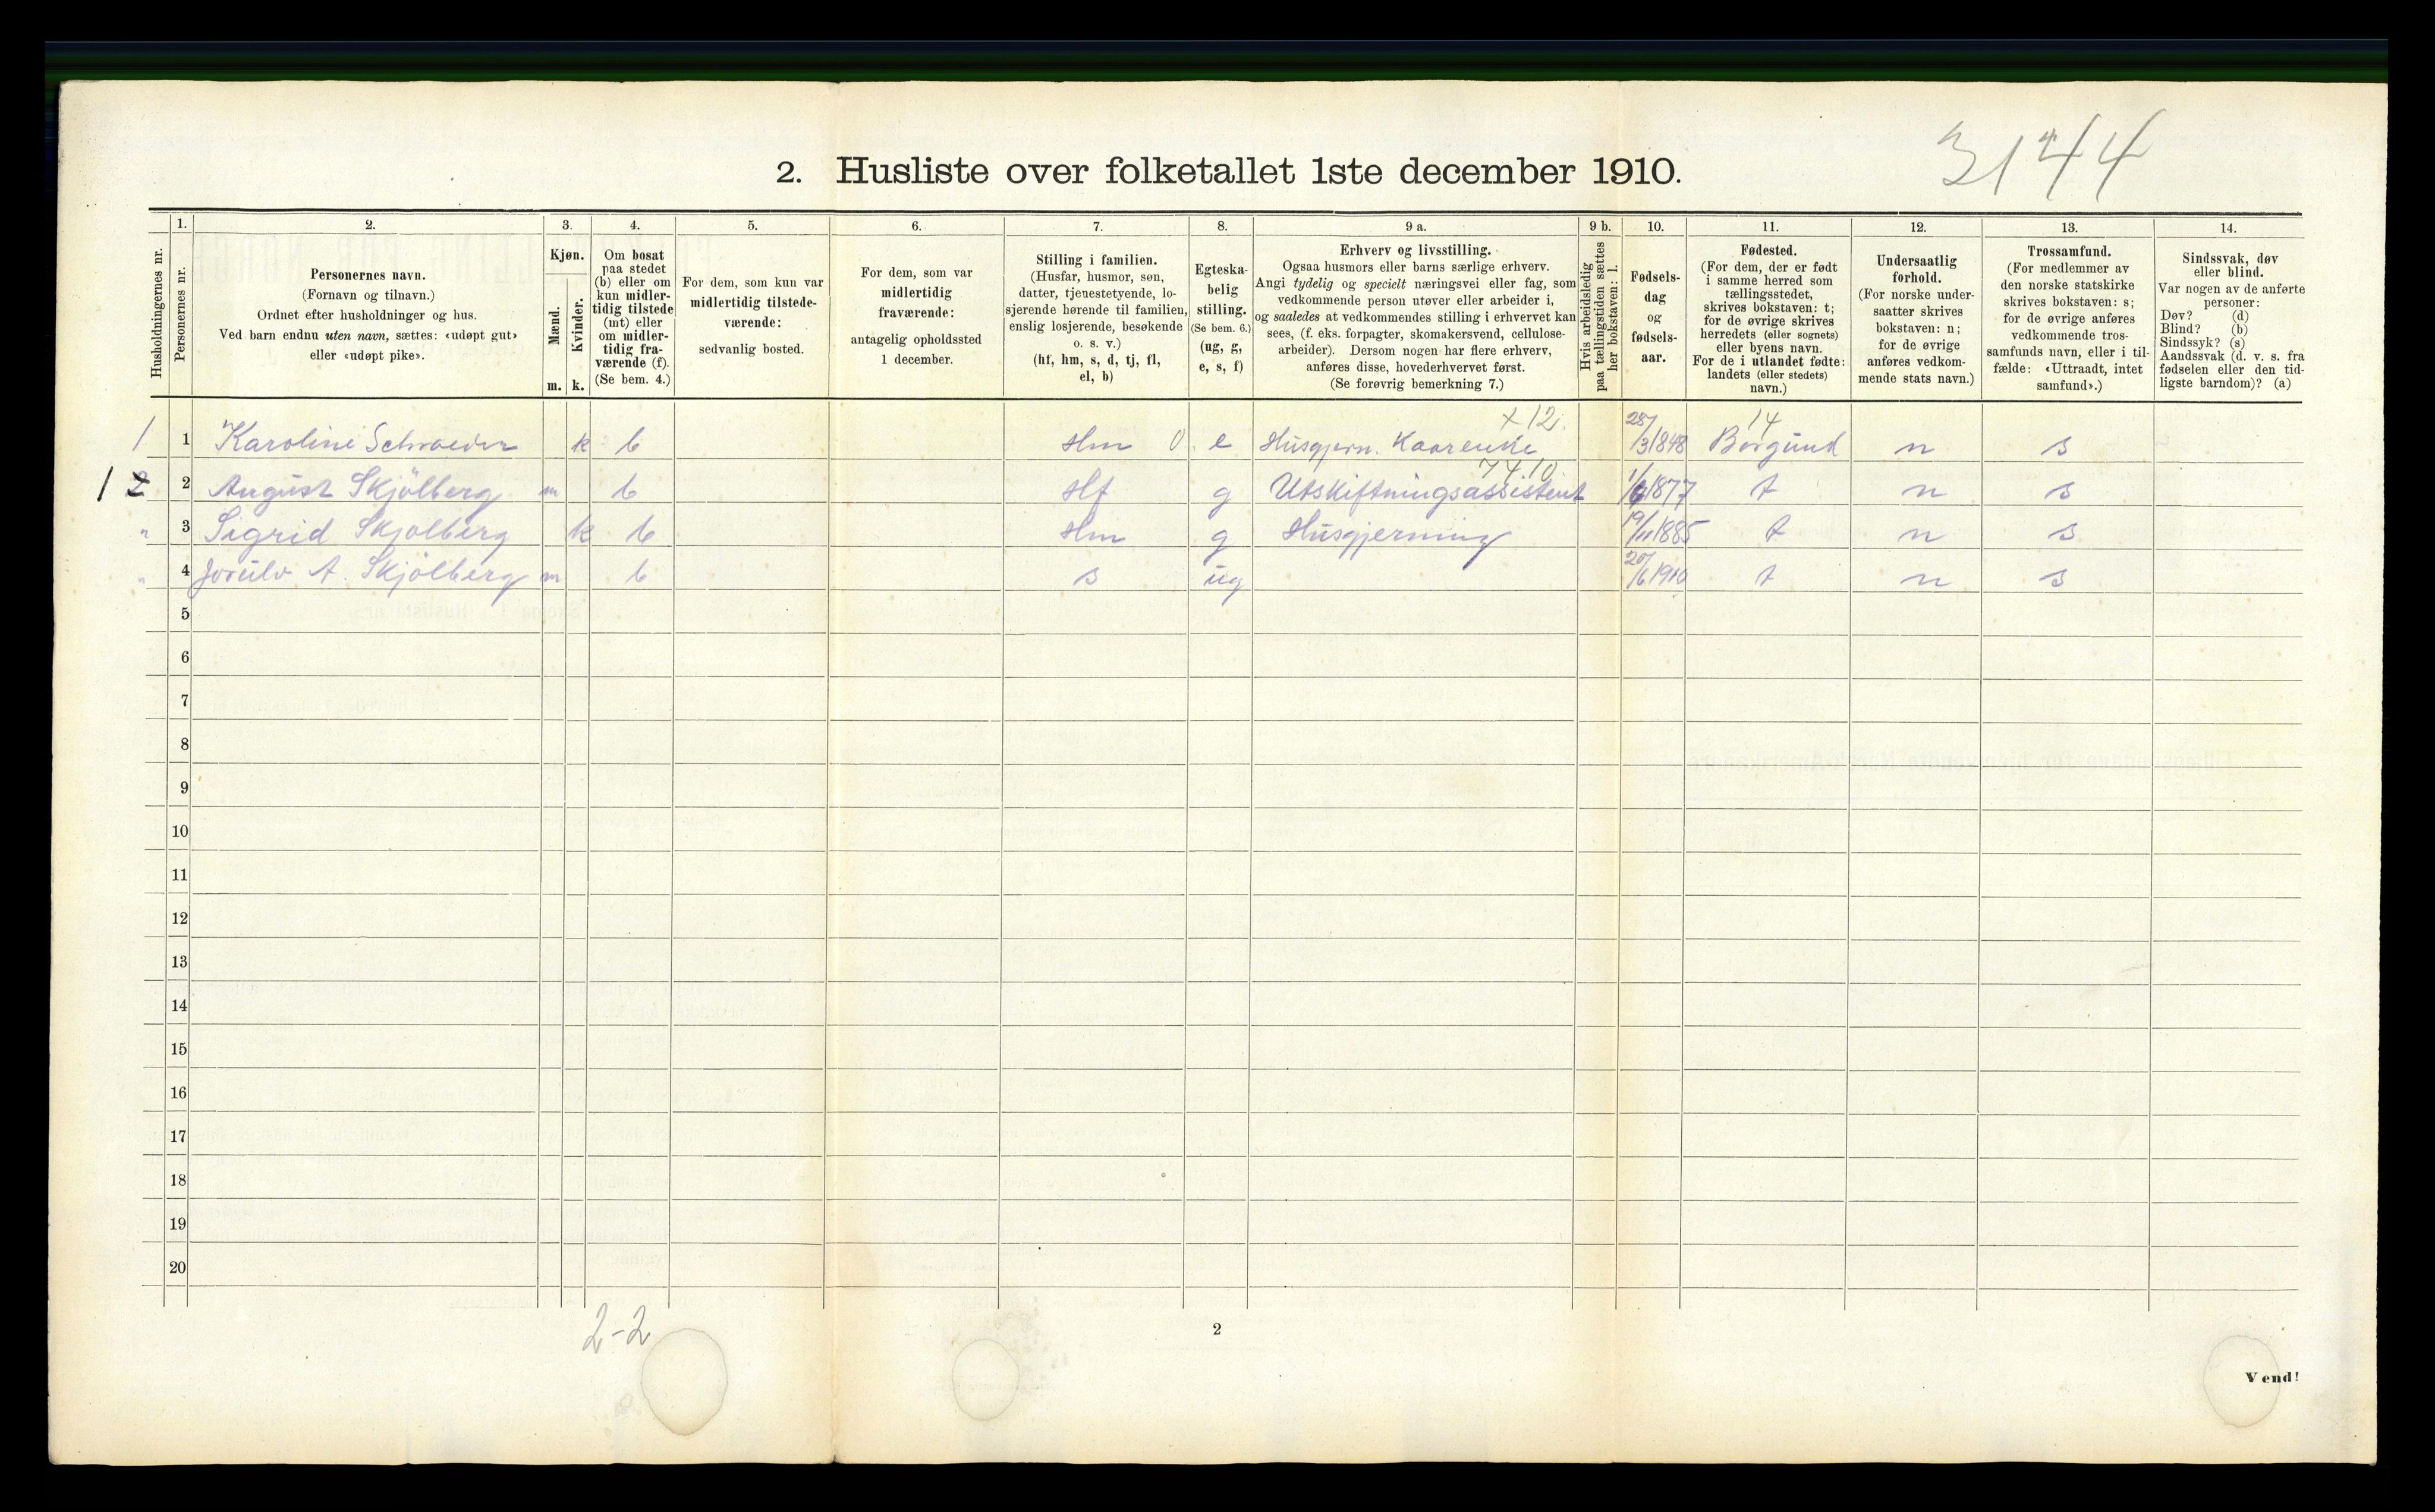 3144
2. Husliste over folketallet 1ste december 1910.
Husholdningernes nr.
1.
Personernes nr.
2.
Personernes navn.
(Fornavn og tilnavn.)
Ordnet efter husholdninger og hus.
Ved barn endnu uten navn, sættes: «udøpt gut»
eller «udøpt pike».
3.
Kjøn.
Mænd.
Kvinder.
m. k.
4.
Om bosat
paa stedet
(b) eller om
kun midler-
tidig tilstede
(mt) eller
om midler-
tidig fra-
værende (f).
(Se bem. 4.)
5.
For dem, som kun var
midlertidig tilstede-
værende:
sedvanlig bosted.
6.
For dem, som var
midlertidig
fraværende:
antagelig opholdssted
1 december.
7.
Stilling i familien.
(Husfar, husmor, søn,
datter, tjenestetyende, lo-
sjerende hørende til familien,
enslig losjerende, besøkende
o. s. v.)
(hf, hm, s, d, tj, fl,
el, b)
8.
Egteska-
belig
stilling.
(Se bem. 6.)
(ug, g,
e, s, f)
9 a.
Erhverv og livsstilling.
Ogsaa husmors eller barns særlige erhverv.
Angi tydelig og specielt næringsvei eller fag, som
vedkommende person utøver eller arbeider i,
og saaledes at vedkommendes stilling i erhvervet kan
sees, (f. eks. forpagter, skomakersvend, cellulose-
arbeider). Dersom nogen har flere erhverv,
anføres disse, hovederhvervet først.
(Se forøvrig bemerkning 7.)
9 b.
Hvis arbeidsledig
paa tællingstiden sættes
her bokstaven: l.
10.
Fødsels-
dag
og
fødsels-
aar.
11.
Fødested.
(For dem, der er født
i samme herred som
tællingsstedet,
skrives bokstaven: t;
for de øvrige skrives
herredets (eller sognets)
eller byens navn.
For de i utlandet fødte:
landets (eller stedets)
navn.)
12.
Undersaatlig
forhold.
(For norske under-
saatter skrives
bokstaven: n;
for de øvrige
anføres vedkom-
mende stats navn.)
13.
Trossamfund.
(For medlemmer av
den norske statskirke
skrives bokstaven: s;
for de øvrige anføres
vedkommende tros-
samfunds navn, eller i til-
fælde: «Uttraadt, intet
samfund».)
14.
Sindssvak, døv
eller blind.
Var nogen av de anførte
personer:
Døv? (d)
Blind? (b)
Sindssyk? (s)
Aandssvak (d. v. s. fra
fødselen eller den tid-
ligste barndom)? (a)
x 12. 14
1 1 Karoline Schrøeder k b Hm 0 e Husgjern. Kaarenke 28/3 1848 Borgund n s
7410.
1 2 2 August Skjölberg m b Hf g Utskiftningsassistent 1/6 1877 t n s
" 3 Sigrid Skjolberg k b Hm g Husgjerning 19/11 1885 t n s
" 4 Jorulv A. Skjölberg m b s ug 20/6 1910 t n s
5
6
7
8
9
10
11
12
13
14
15
16
17
18
19
20
2-2
2
Vend!